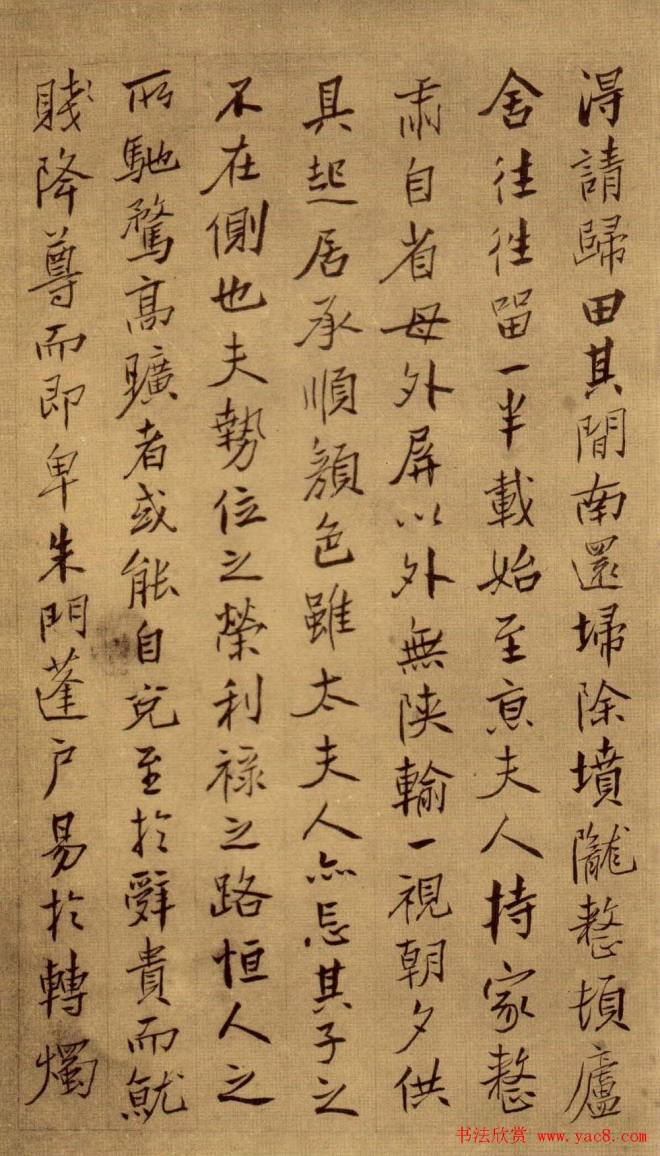 得請歸田其間南還埽除墳隴整頓廬
舍往往留一半載始至京夫人持家整
肅自省母外屏以外無陝輸一視朝夕供
具起居承順顏色雖太夫人亦忘其子之
不在側也夫勢位之榮利祿之路恒人之
所馳騖高曠者或能自免至於辭貴而就
賤降尊而即卑朱門蓬户易於轉燭
书法欣赏 www.yac8.com